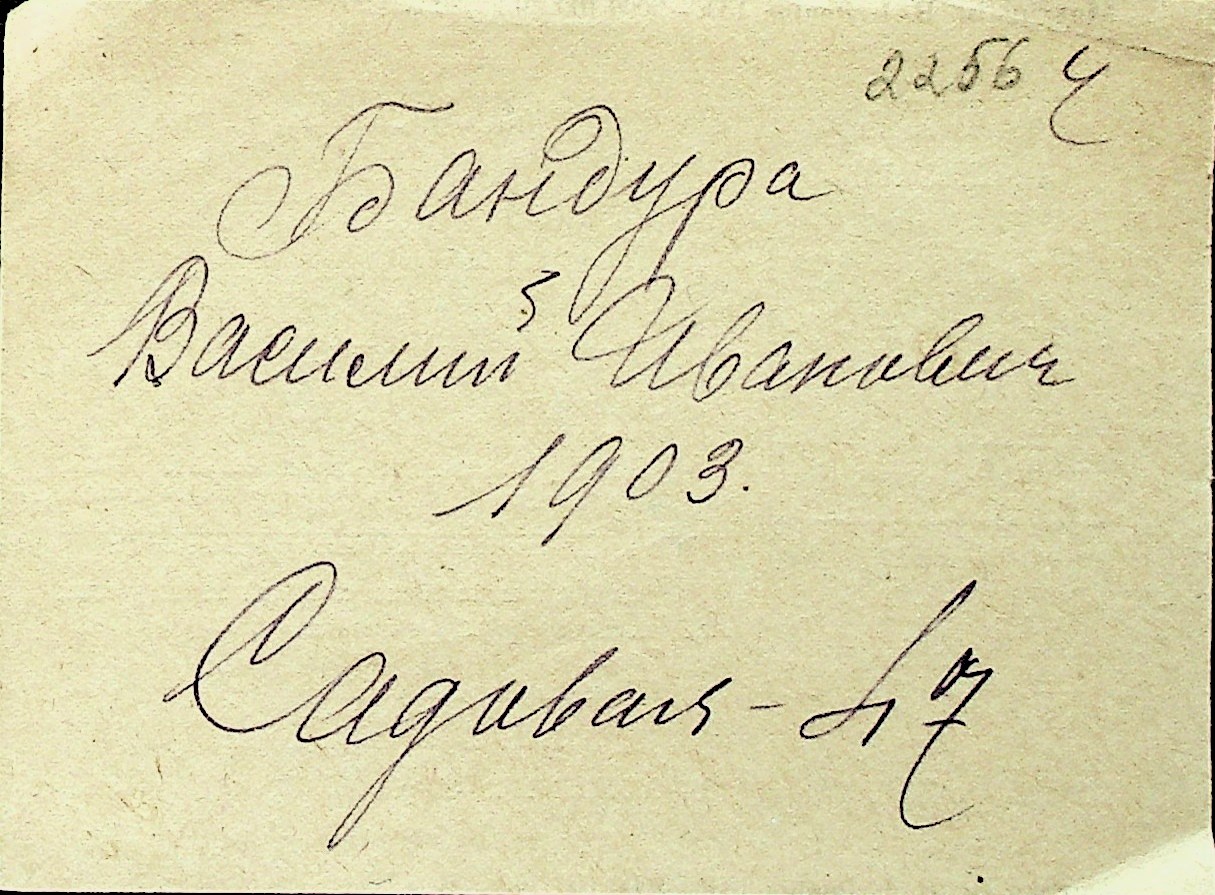 2256 ч
Бандура
Василий Иванович
1903.
Садовая - 47